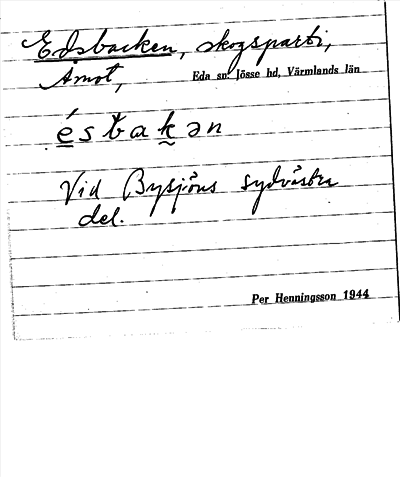 Edsbacken, skogsparti,
Åmot, Eda sn. Jösse hd, Värmlands län
é̲sbak̰ən
Vid Bysjöns sydvästra
del.
Per Henningsson 1944